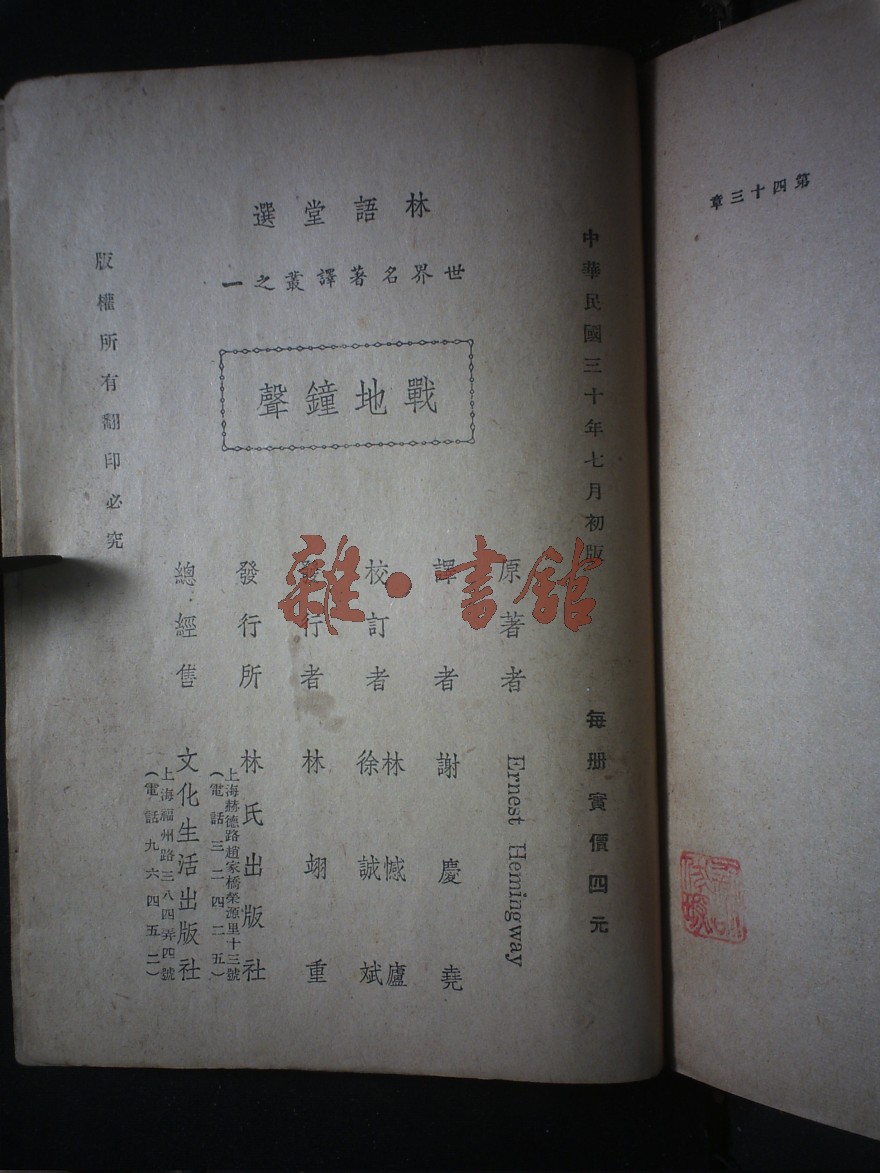 第四十三章
中華民國三十年七月初版
每册實價四元
林語堂選
世界名著譯叢之一
戰地鐘聲
原著者 Ernest Hemingway
譯者 謝慶堯
校訂者 林憾廬 徐誠斌
發行者 林翊重
發行所 林氏出版社
上海赫德路趙家橋榮源里十三號
(電話三二四二五)
總經售 文化生活出版社
上海福州路三八四弄四號
(電話九六四五二)
版權所有翻印必究
雜·書館